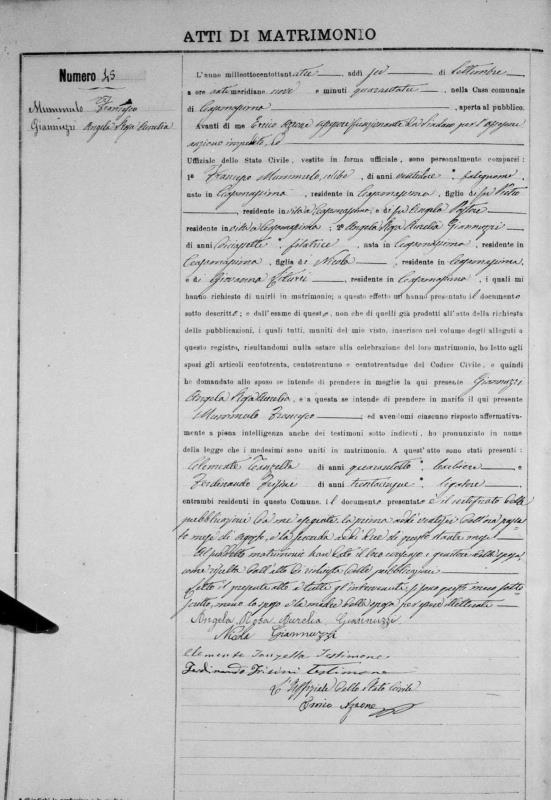 ATTI DI MATRIMONIO
Numero 45
Mummulo Francesco
Giannuzzi Angela Rosa Aurelia
L'anno milleottocentottantatre, addì sei di Settembre
a ore anti meridiane nove e minuti quaranta, nella Casa comunale
di Casamassima, aperta al pubblico.
Avanti di me Enrico Azzone Assessore funzionante da Sindaco per l'
impedito,
Uffiziale dello Stato Civile, vestito in forma ufficiale, sono personalmente comparsi:
1º Francesco Mummulo, celibe, di anni ventidue, falegname,
nato in Casamassima, residente in Casamassima, figlio di fu Pietro
, residente in vita a Casamassima, e di fu Angela Pastore
residente in vita a Casamassima; 2º Angela Rosa Aurelia Giannuzzi
di anni diciassette, filatrice, nata in Casamassima, residente in
Casamassima, figlia di Nicola, residente in Casamassima,
e di Giovanna, residente in Casamassima, i quali mi
hanno richiesto di unirli in matrimonio; a questo effetto mi hanno presentato il documento
sotto descritto; e dall'esame di questo, non che di quelli già prodotti all'atto della richiesta
delle pubblicazioni, i quali tutti, muniti del mio visto, inserisco nel volume degli allegati a
questo registro, risultandomi nulla ostare alla celebrazione del loro matrimonio, ho letto agli
sposi gli articoli centotrenta, centotrentuno e centotrentadue del Codice Civile, e quindi
ho domandato allo sposo se intende di prendere in moglie la qui presente Giannuzzi
Angela Rosa Aurelia, e a questa se intende di prendere in marito il qui presente
Mummulo Francesco; ed avendomi ciascuno risposto affermativamente
a piena intelligenza anche dei testimoni sotto indicati, ho pronunziato in nome
della legge che i medesimi sono uniti in matrimonio. A quest'atto sono stati presenti:
Clemente Tanzella di anni quarantotto, barbiere e
Ferdinando Frisini di anni trentacinque,
entrambi residenti in questo Comune. il documento presentato è il certificato delle
pubblicazioni da me eseguite la prima nel dì ventisei dell'ora passa-
to mese di Agosto, e la seconda nel dì due di questo stante mese
Al suddetto matrimonio han dato il loro consenso i genitori della sposa,
come risulta dall'atto di richiesta delle pubblicazioni
Letto il presente atto a tutti gl'intervenuti, si sono questi meco sotto-
scritti, meno lo sposo e la madre della sposa per essere illetterati
Angela Rosa Aurelia Giannuzzi
Nicola Giannuzzi
Clemente Tanzella Testimone
Ferdinando Frisini testimone
L'Uffiziale dello Stato Civile
Enrico Azzone